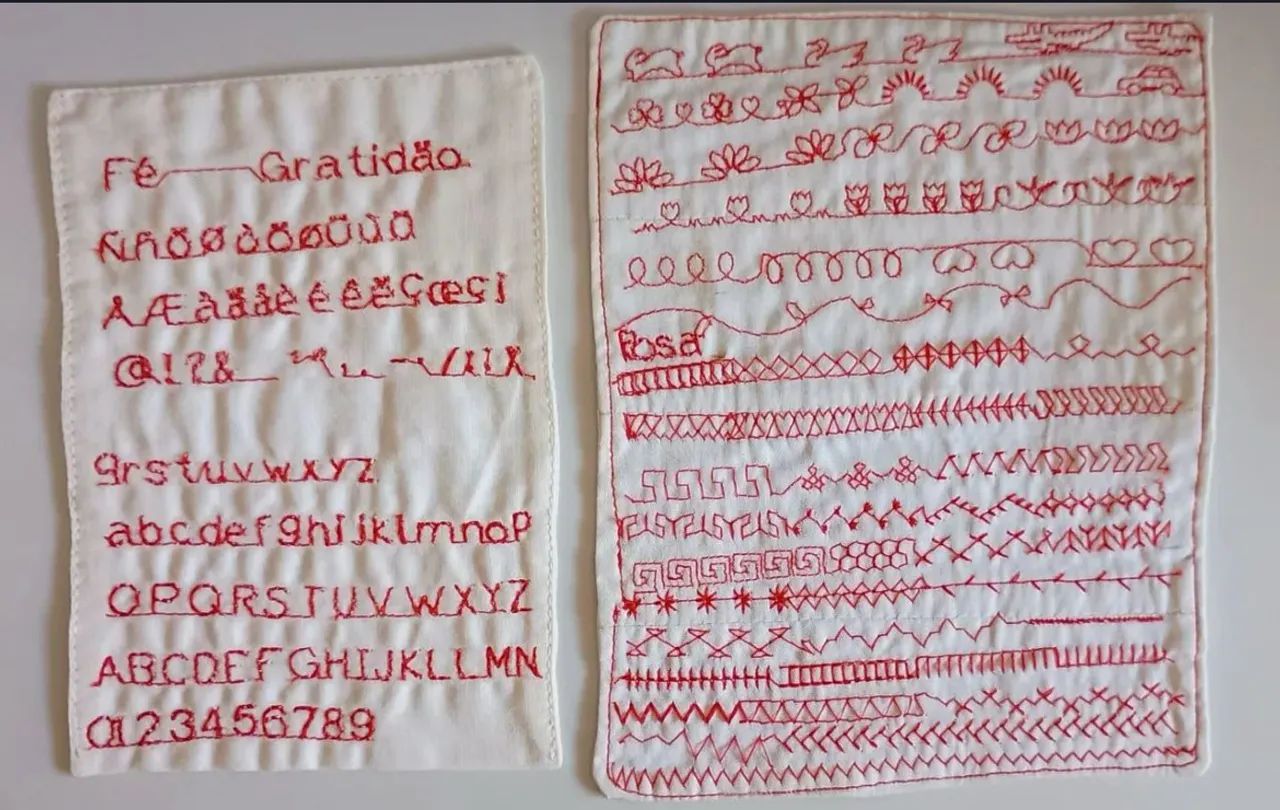 Fé Gratidão
ÑñÖØòÖøÜùÖ
ÅÆàäåèéêëÇœçí
@!?&_
qrstuvwxyz
abcdefghijklmnop
OPQRSTUVWXYZ
ABCDEFGHIJKLLMN
0123456789
Rosa